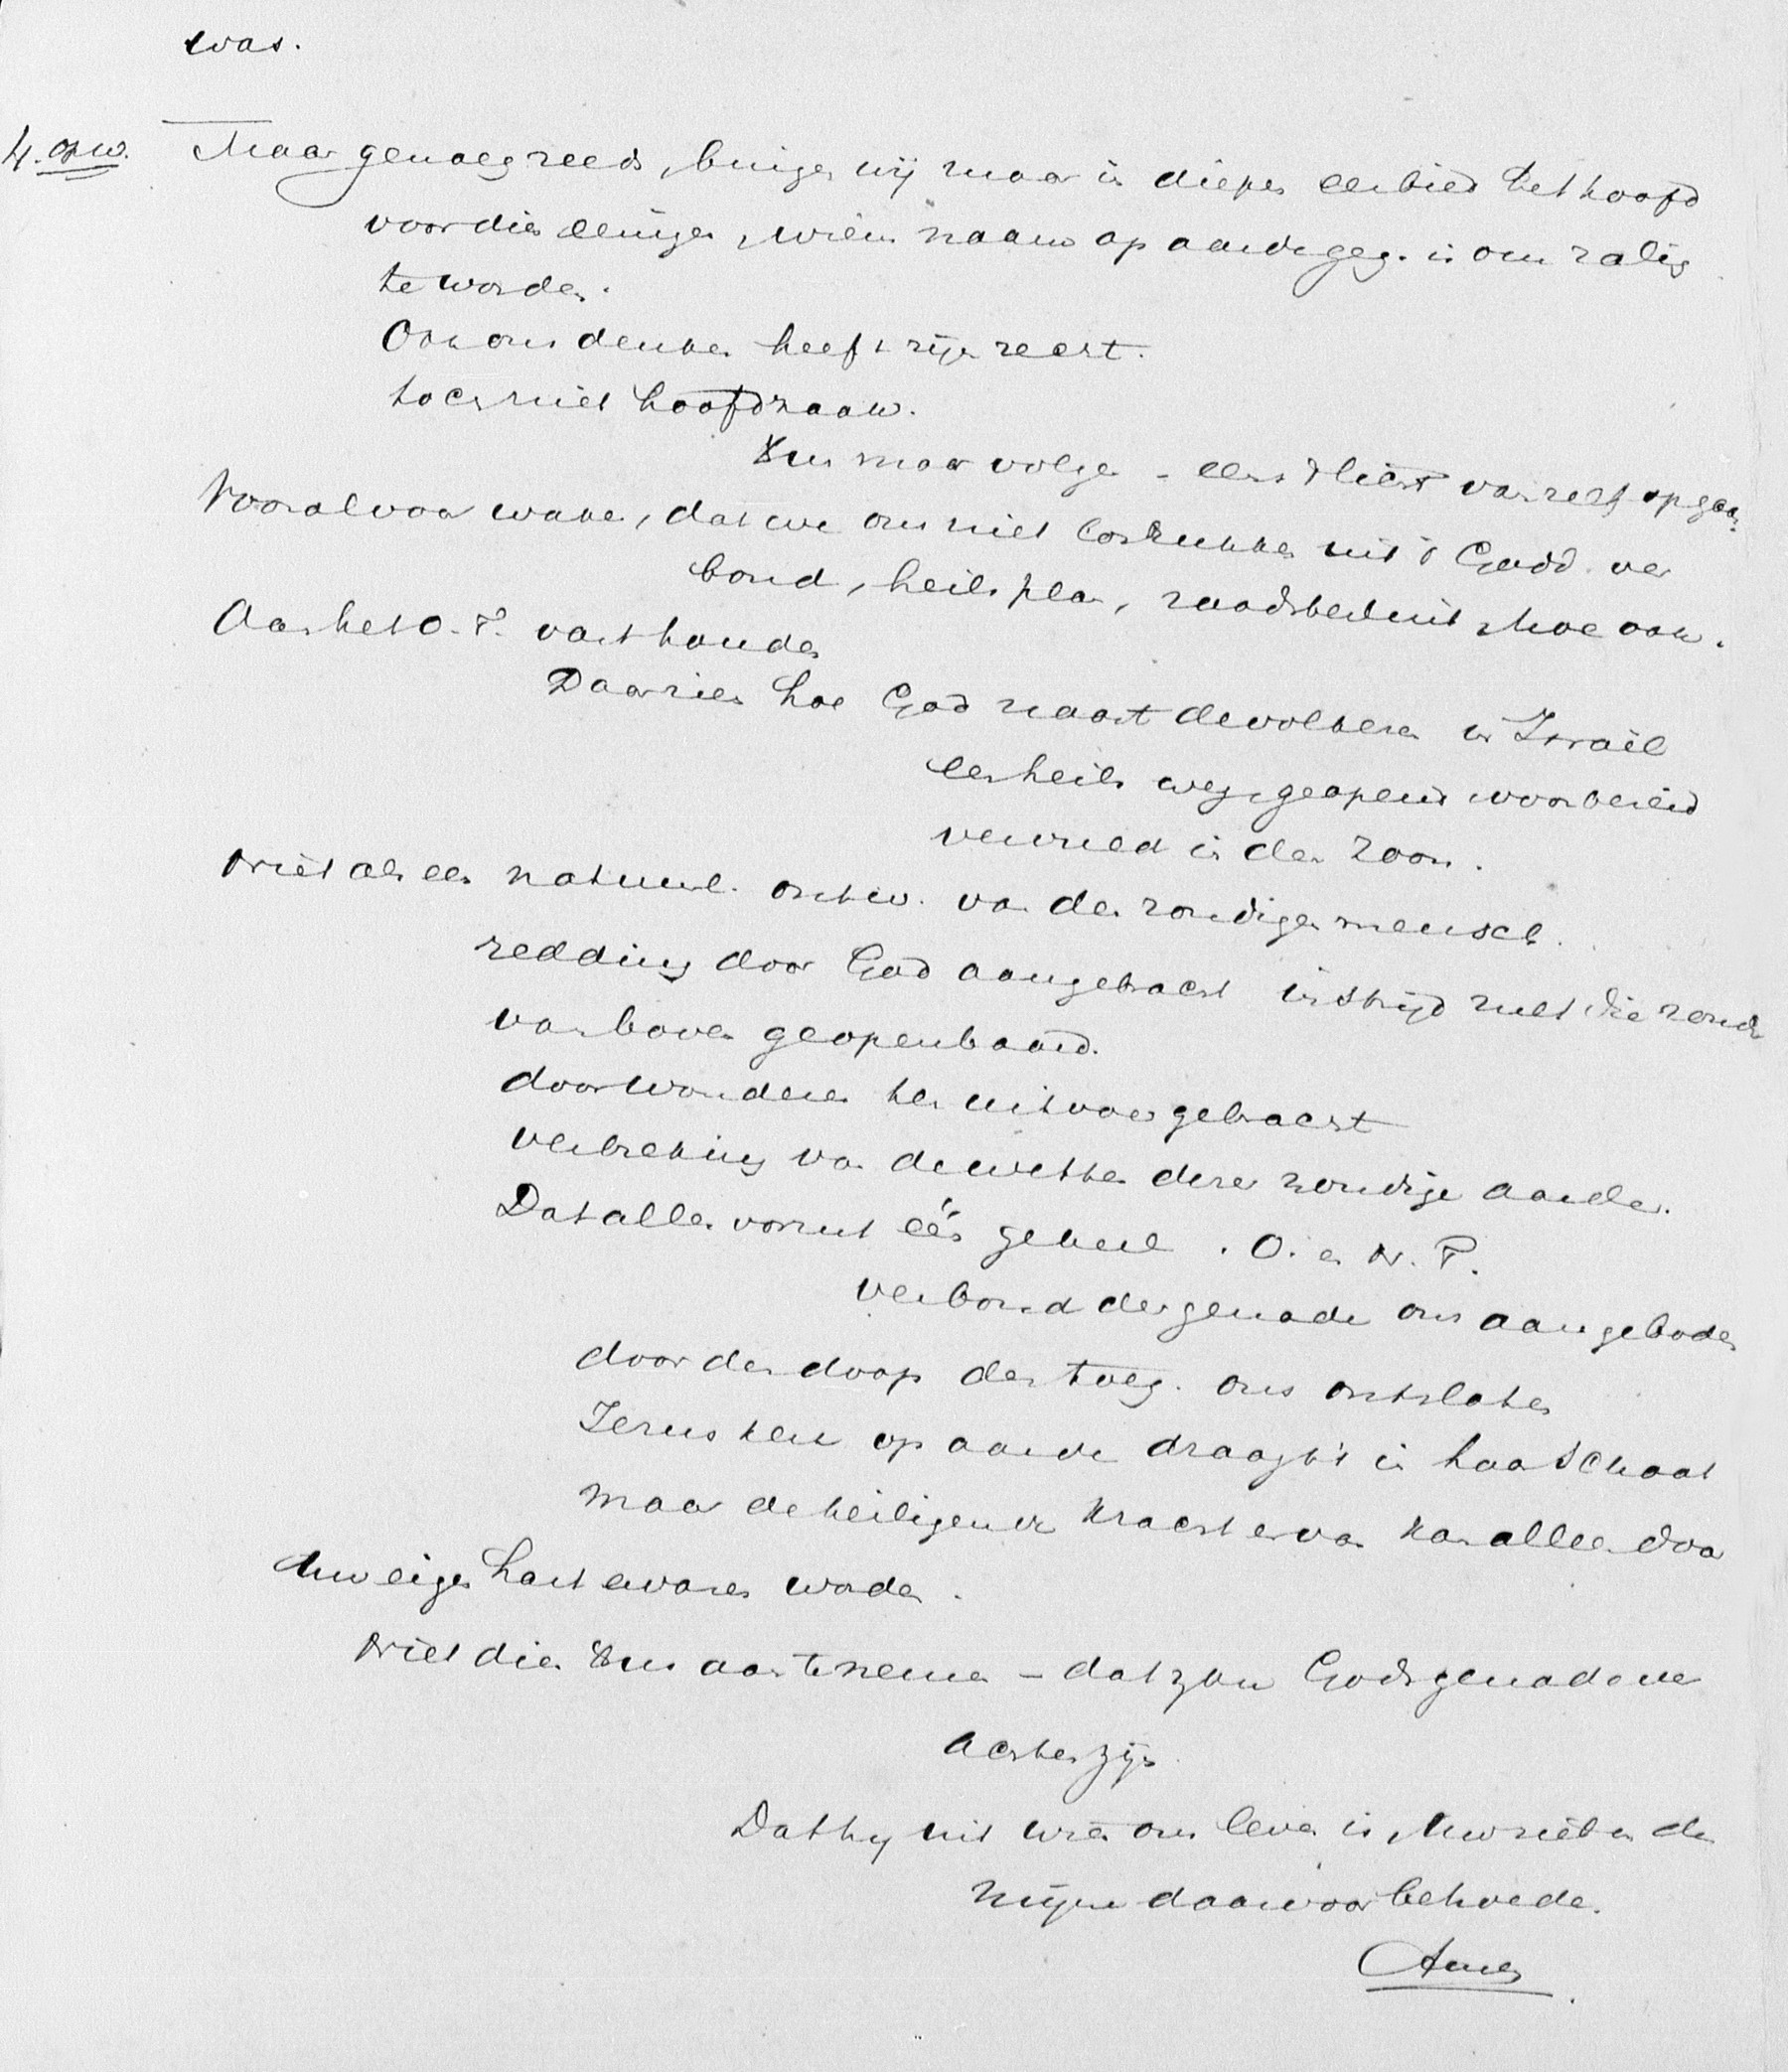 was.
4. opw. Maar genoeg reeds, buigen wij maar in diepen eerbied het hoofd
voor dien eenigen, wiens naam op aarde geg. is om zalig
te worden.
Ook ons denken heeft zijn recht.
toch niet hoofdzaak.
maar volgen - eens 't licht van zelf opgaan
Vooral voor waken, dat we ons niet losrukken uit 't Godd. ver
bond, heilsplan, raadsbesluit, hoe ook.
Aan het O.T. vasthouden
Daar zien hoe God naast de volkeren in Israël
een heilsweg geopend voorbereid
vervuld in den Zoon.
Niet als een natuurl. ontw. van den zondigen mensch.
redding door God aangebracht in strijd met die zonde
van boven geopenbaard.
door wonderen ten uitvoer gebracht
verbreking van de wetten dezer zondige aarde.
Dat alles vormt één geheel. O. en N.T.
verbond der genade ons aangeboden
door den doop den toeg. ons ontsloten
Jezus kerk op aarde draagt 't in haar schoot
maar de heiligende kracht ervan kan alleen door
Uw eigen hart ervaren worden.
Niet dien aan te nemen - dat zou Gods genade ver
achten zijn.
Dat hij uit wien ons leven is, Uw ziel en de
mijne daarvoor behoede.
Amen